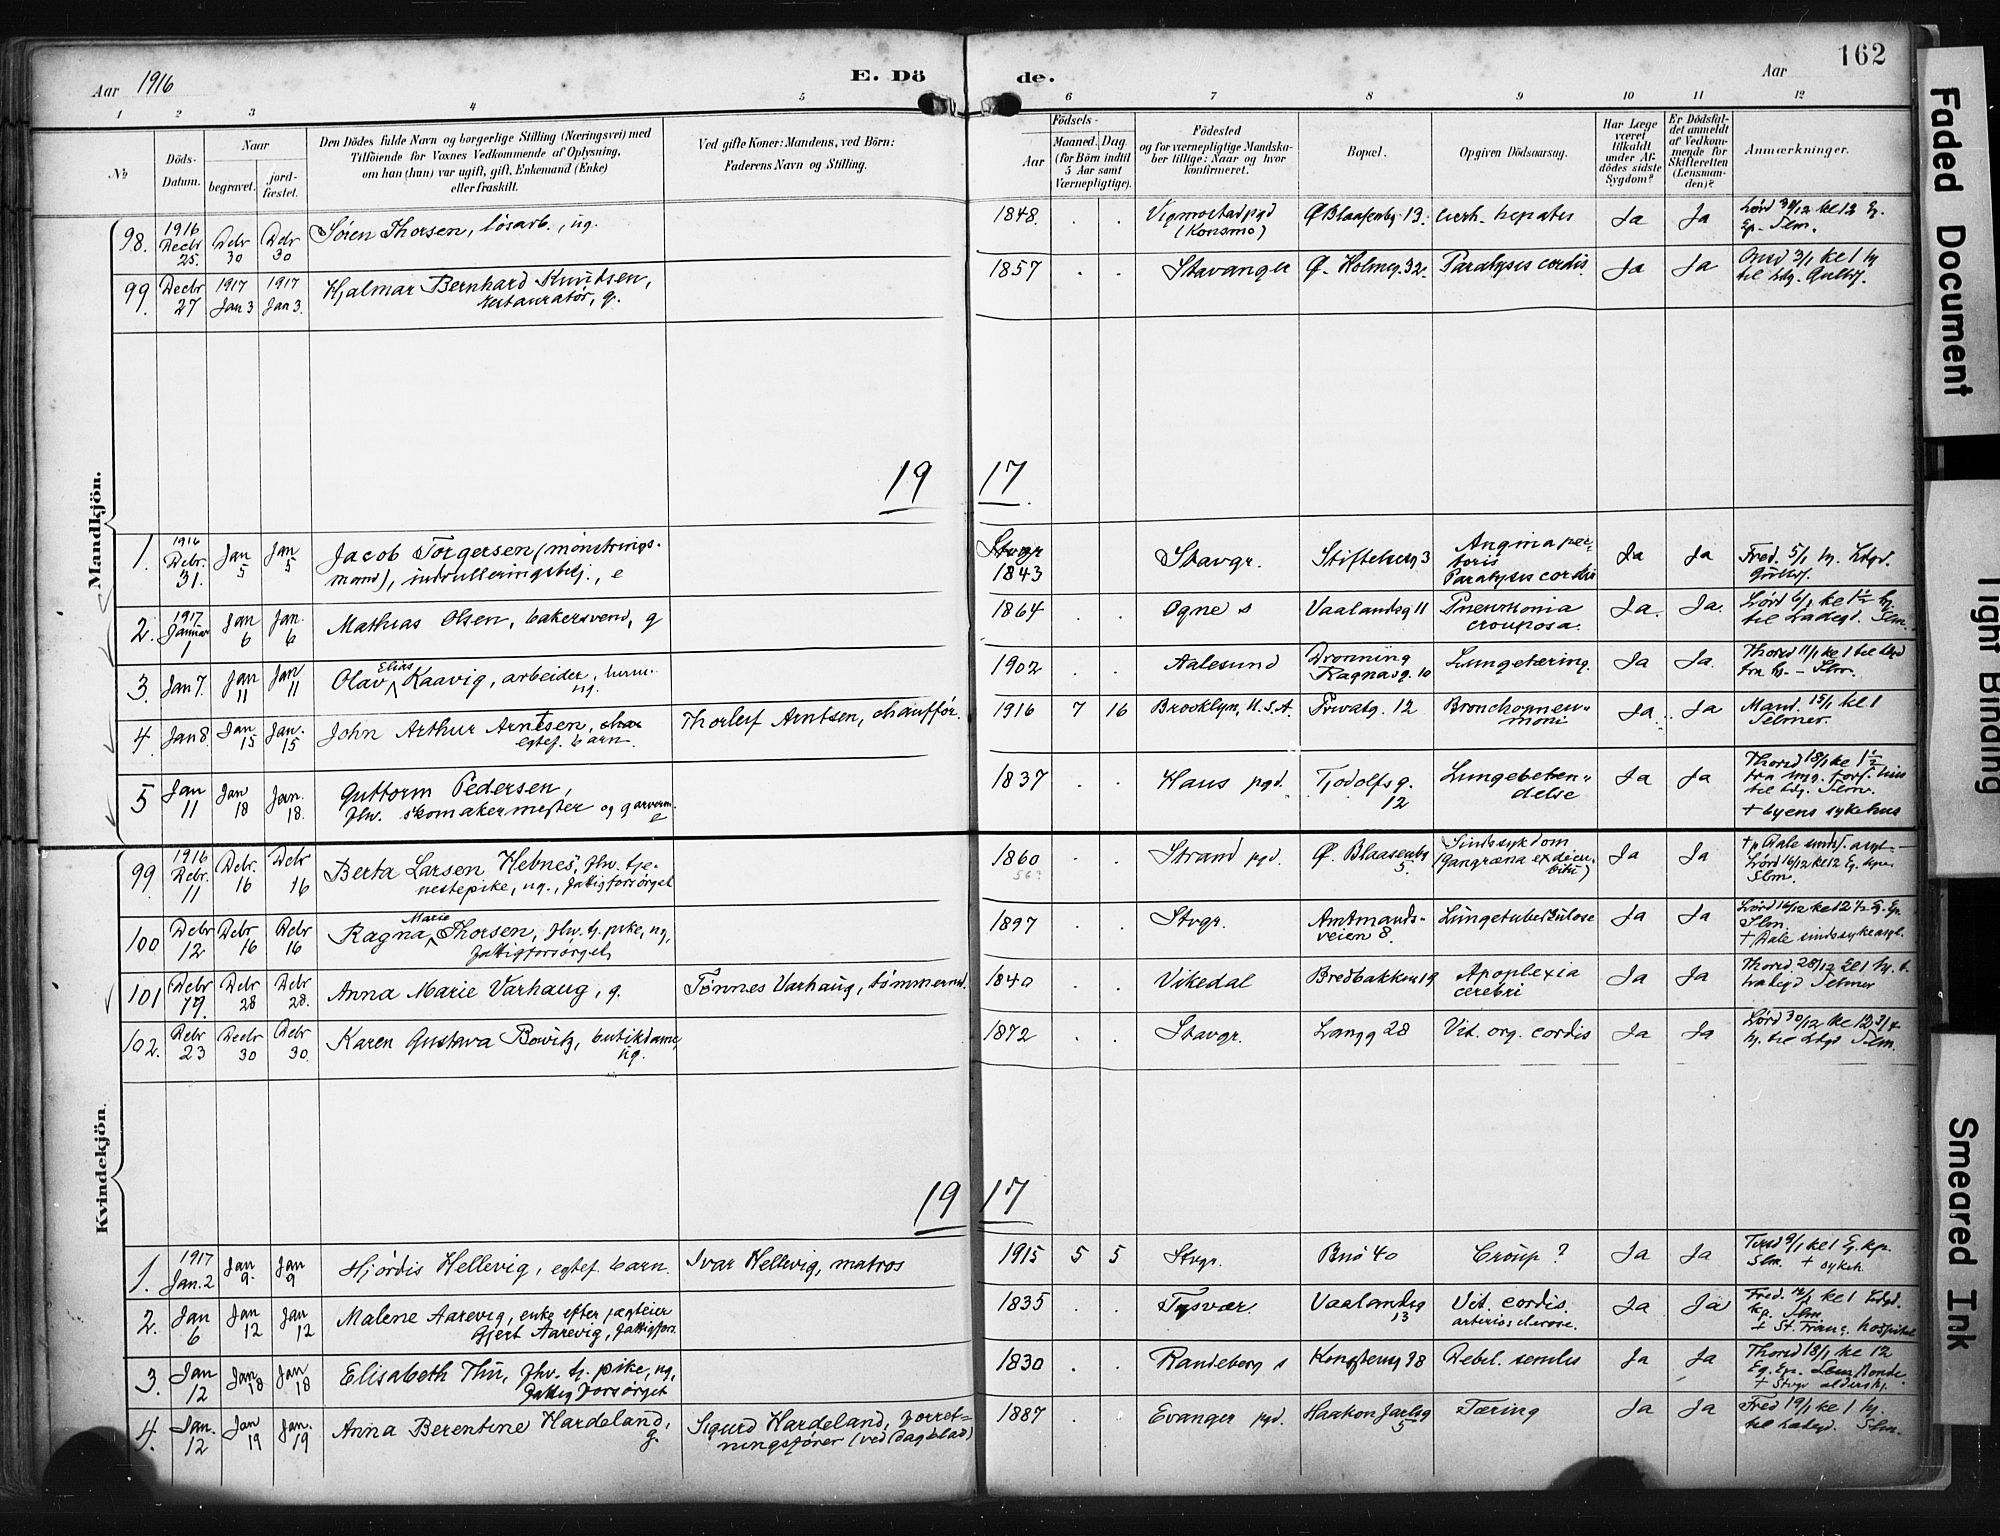 Aar 1916
E. Dö de.
Aar
162
1 2 3 4 5 6 7 8 9 10 11 12
No
Döds-Datum.
Naar
begravet.
jord-fæstet.
Den Dödes fulde Navn og borgerlige Stilling (Næringsvei) med
Tilföiende for Voxnes Vedkommende af Oplysning,
om han (hun) var ugift, gift, Enkemand (Enke)
eller fraskilt.
Ved gifte Koner: Mandens, ved Börn:
Faderens Navn og Stilling.
Födsels-
Aar
Maaned. Dag
(for Börn indtil
5 Aar samt
Værnepligtige).
Födested
og for værnepligtige Mandska-
ber tillige: Naar og hvor
konfirmeret.
Bopæl.
Opgiven Dödsaarsag.
Har Læge
været
tilkaldt
under Af-
dödes sidste
Sygdom?
Er Dödsfal-
det anmeldt
af Vedkom-
mende for
Skifteretten
(Lensman-
den)?
Anmærkninger.
Mandkjön.
98. 1916 Decbr 25. Debr 30 Debr 30 Søren Thorsen, løsarb., ug. 1848. . . Vigmostad pgd (Konsmo) Ø Blaasenbg 13. cirrh. hepatis Ja Ja Lørd 30/12 kl 12 Eg. Ep. Slm.
99. Decbr 27 1917 Jan 3 1917 Jan 3. Hjalmar Bernhard Knudsen, restauratør, g. 1857 . . Stavanger Ø. Holmeg. 32. Paralysis cordis Ja Ja Onsd 3/1 kl 1 hj til Ldg.
19 17
1. 1916 Debr. 31. Jan 5 Jan 5 Jacob Torgersen (mønstrings-
mand), indrulleringsbetj., e Stvgr 1843 Stavgr. Stiftelsesg 3 Angina pec-
toris
Paralysis cordis Ja Ja Fred. 5/1 hj. Ldgd.
2. 1917 Januar 1 Jan 6 Jan. 6 Mathias Olsen, bakersvend, g 1864 . . Ogne s Vaalandsg 11 Pneumonia crouposa. Ja. Ja. Lørd 6/1 kl 1 1/2 hj. til Ladegd. Slm.
3. Jan 7. Jan 11 Jan 11 Olav Elias Kaavig, arbeider, hjem. ug. 1902 . . Aalesund Dronning Ragnasg. 10 Lungetæring. Ja Ja. Thorsd 11/1 kl 1 til Ldgd fra hj. – Slm.
4. Jan 8. Jan 15 Jan. 15 John Arthur Arntsen, egtef. barn. Thorleif Arntsen, chauffør. 1916 7 16 Brooklyn, U.S.A. Privatg. 12 Bronchopneu-
moni Ja Ja Mand. 15/1 kl 1 Selmer.
5 Jan 11 Jan 18 Jan. 18. Guttorm Pedersen,
fhv. skomakermester og garverm. e 1837 . . Haus pgd. Tjodolfsg. 12 Lungebeten-
delse Ja Ja Thorsd 18/1 kl 1 1/2 fra til Ldg. Slm.
+ byens sykehus
Kvindekjön.
99. 1916 Debr. 11 Debr. 16 Debr 16 Berta Larsen Hebnes, fhv. tje-
nestepike, ug., fattigforsørget 1860 56? . . Strand pgd. Ø. Blaasenbg 5. Sindssykdom
(Gangræna ex decu-
bitu) Ja Ja + p Dale sinds. asyl –
Lørd 16/12 kl 12 Eg. kpe. Slm.
100 Debr 12 Debr 16 Debr 16 Ragna Marie Thorsen, fhv. tj. pike, ug,
fattigforsørget 1897 . . Stvgr. Amtmands-
veien 8. Lungetuberkulose Ja Ja Lørd 16/12 kl 12 1/2 Eg. Ep. Slm.
+ Dale sindssykeasyl.
101 Debr 19. Debr 28 Debr 28. Anna Marie Varhaug, g. Tønnes Varhaug, tømmerm. 1840 . . Vikedal Bredbakken 19 Apoplexia cerebri Ja Ja Thorsd. 28/12 kl 1 hj. t. Ladegd Selmer
102. Debr 23 Decbr 30 Debr 30. Karen Gustava Bowitz, butikdame, ug. 1872 . . Stavgr. Langg 28 Vit. org. cordis Ja Ja Lørd 30/12 kl 12 3/4 hj. til Ldgd Slm.
19 17
1. 1917 Jan. 2 Jan 9. Jan 9 Hjørdis Hellevig, egtef. barn. Ivar Hellevig, matros 1915 5 5 Stvgr. Buø 40 Croup? Ja Ja Tirsd 9/1 kl 1 Eg. kp. Slm. + sykeh.
2. Jan 6 Jan 12 Jan 12 Malene Aarevig, enke efter jægteier
Gjert Aarevig, fattigfors. 1835 . . Tysvær. Vaalandsg 13 Vit. cordis.
arteriosclerose. Ja Ja Fred. 12/1 kl 1 Ldgd. kp. Slm.
+ St. Franc. hospital
3. Jan 12 Jan 18 Jan 18 Elisabeth Thu, fhv. tj. pike, ug,
fattigforsørget 1830 . . Randeberg s Kongsteng 38 Debil. senilis Ja Ja Thorsd 18/1 kl 12 Eg. Ep.
+ Stvgr aldershj.
4. Jan. 12 Jan 19 Jan. 19 Anna Berentine Hardeland, g. Sigurd Hardeland, forret-
ningsfører (ved Dagblad) 1887 . . Evanger pgd. Haakon Jarlsg 5 Tæring Ja Ja Fred 19/1 kl 1 hj. til Ladegd. Slm.
Faded Document
Tight Binding
Smeared Ink